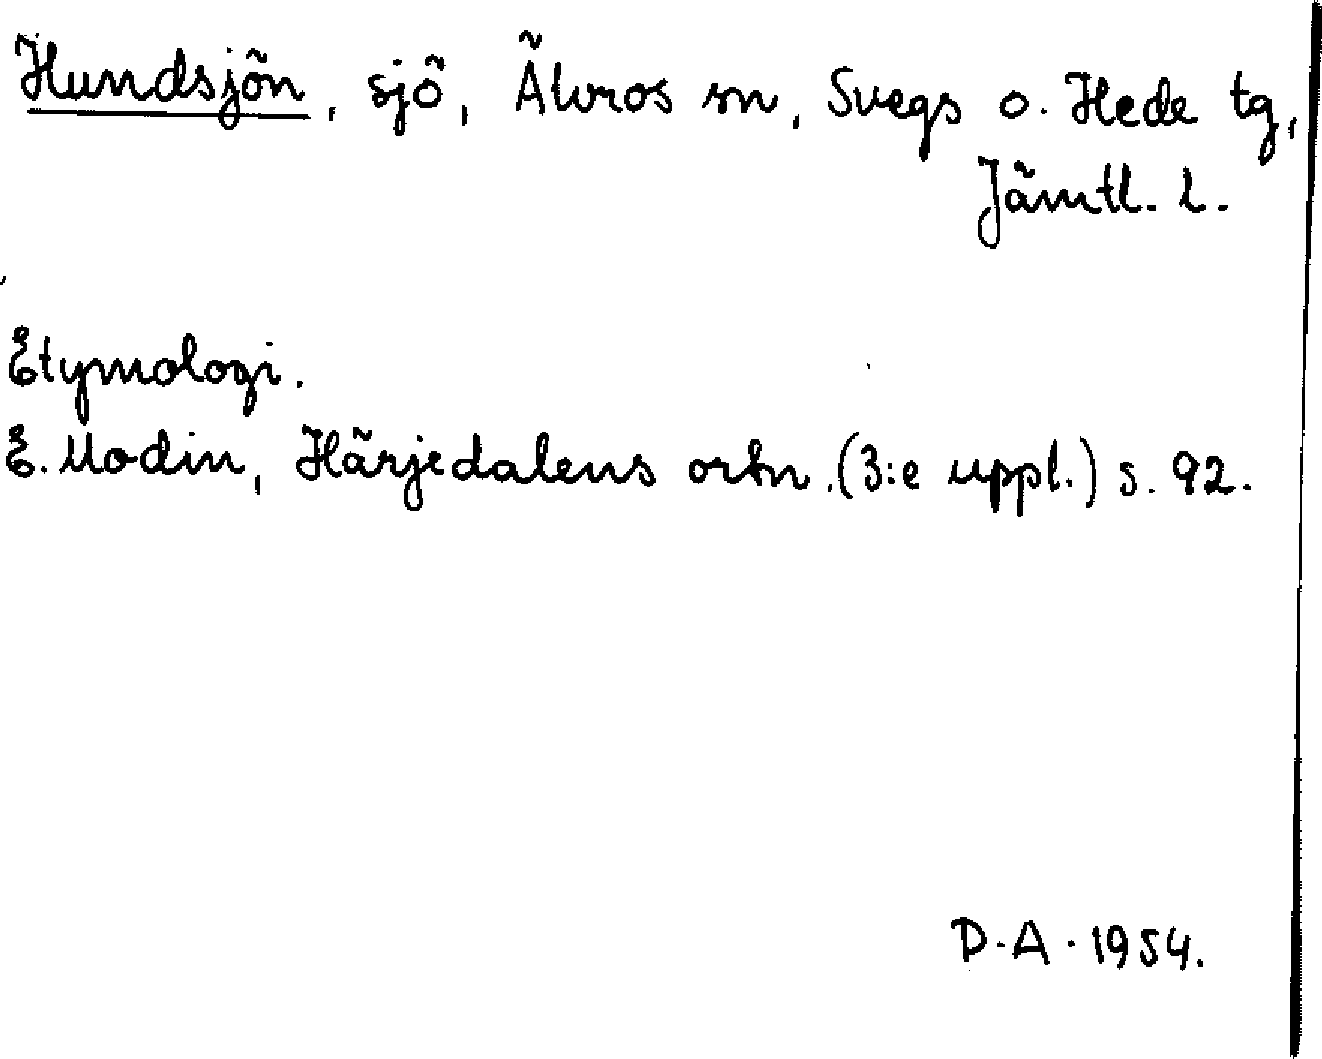 Hundsjön, sjö, Älvros sn, Svegs o. Hede tg,
Jämtl. l.
Etymologi.
E. Modin, Härjedalens ortn. (3:e uppl.) s. 92.
D.A. 1954.